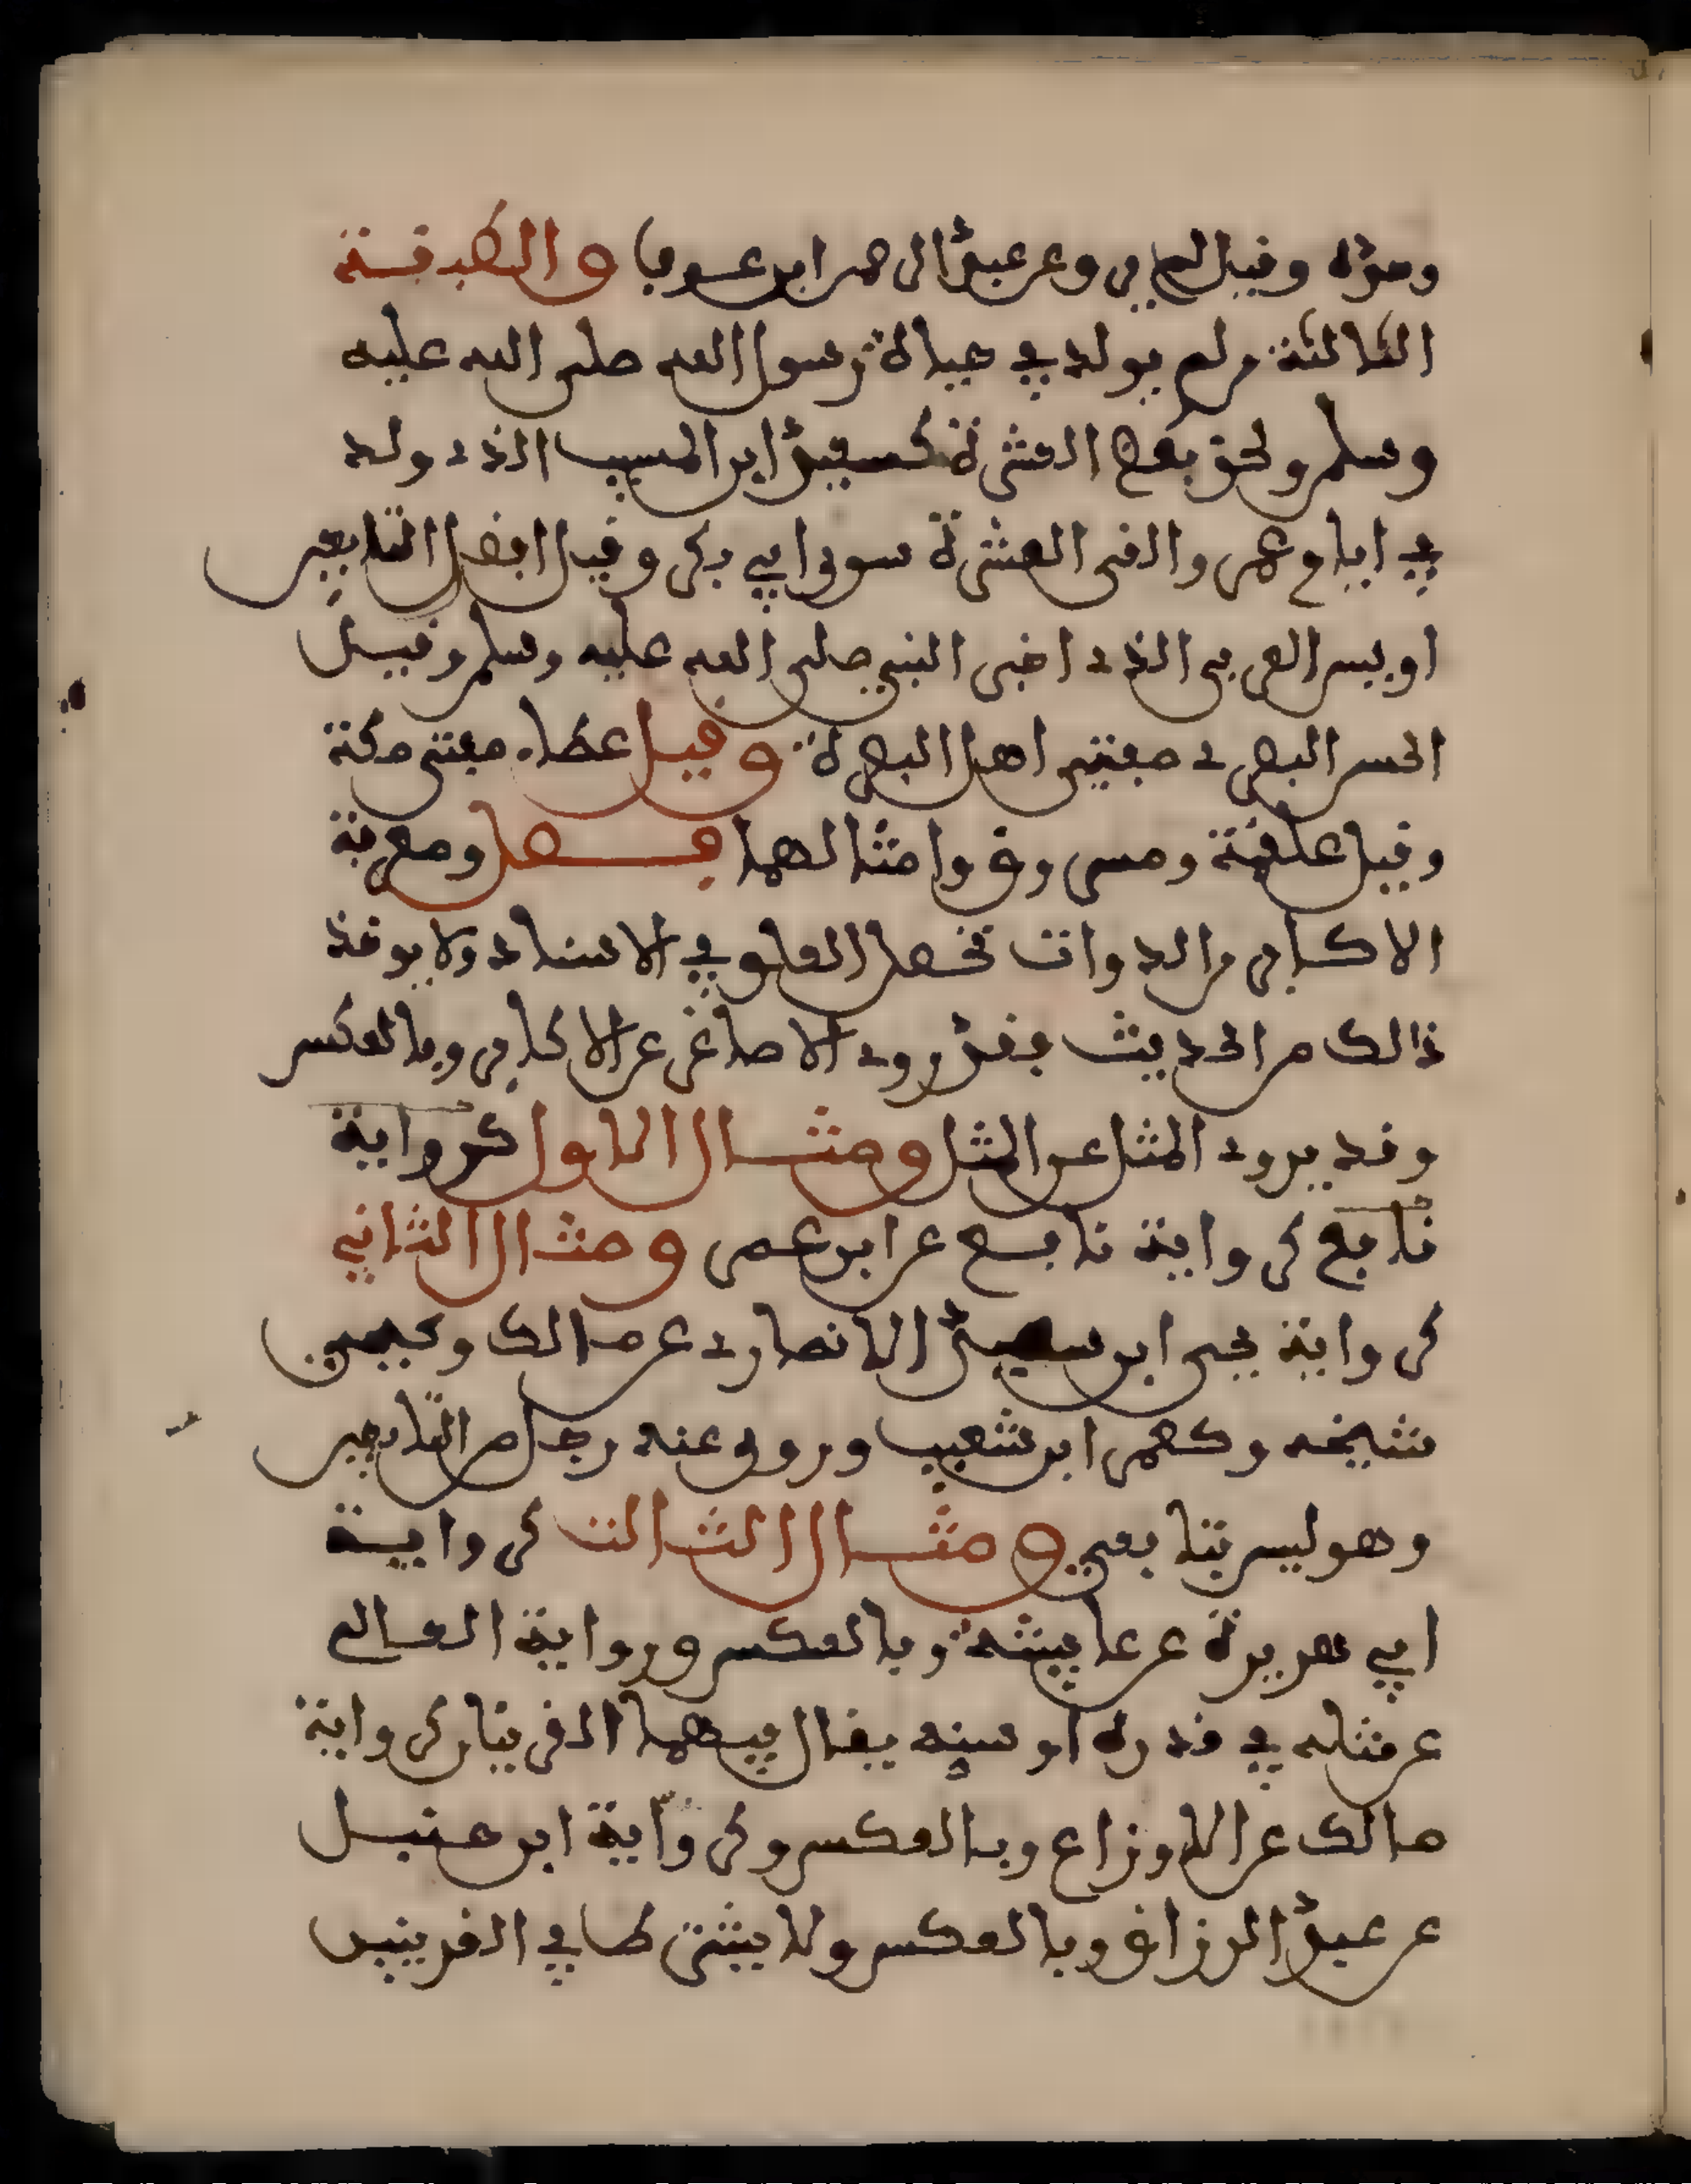 وحده وقيل الحابر وعن عبد الرحمن ابن عوف والطبقة
الثالثة من لم يولد في حياة رسول الله صلى الله عليه
وسلم ولحق بعض العشرة كسعيد ابن المسيب الذي ولد
في ايام عمر والفى العشرة سوى ابي بكر وقيل افضل التابعين
اويس القربي الذي اخبر النبي صلى الله عليه وسلم وقيل
الحسن البصري مفتي اهل البصرة وقيل عطاء مفتي مكة
وقيل علقمة ومسروق وامثالهما فصل ومعرفة
الاكابر من الدوات تحصل العلو في الاسناد ولا يوخذ
ذالك من الحديث فقد روى الاصاغر عن الاكابر وبالعكس
وقد يروى المثل عن المثل ومثال الاول كرواية
نافع كرواية نافع عن ابن عمر ومثال الثاني
كرواية يحيى ابن سعيد الانصاري عن مالك وكيحيى
شيخه وكعمر ابن شعيب وروى عنه رجل من التابعين
وهو ليس بتابعي ومثال الثالث كرواية
ابي هريرة عن عايشة وبالعكس ورواية العالم
عن مثله في قدره او سنه يقال فيهما القرينان كرواية
مالك عن الاوزاع وبالعكس وكرواية ابن حنبل
عن عبد الرزاق وبالعكس ولا يشترط في القرينين